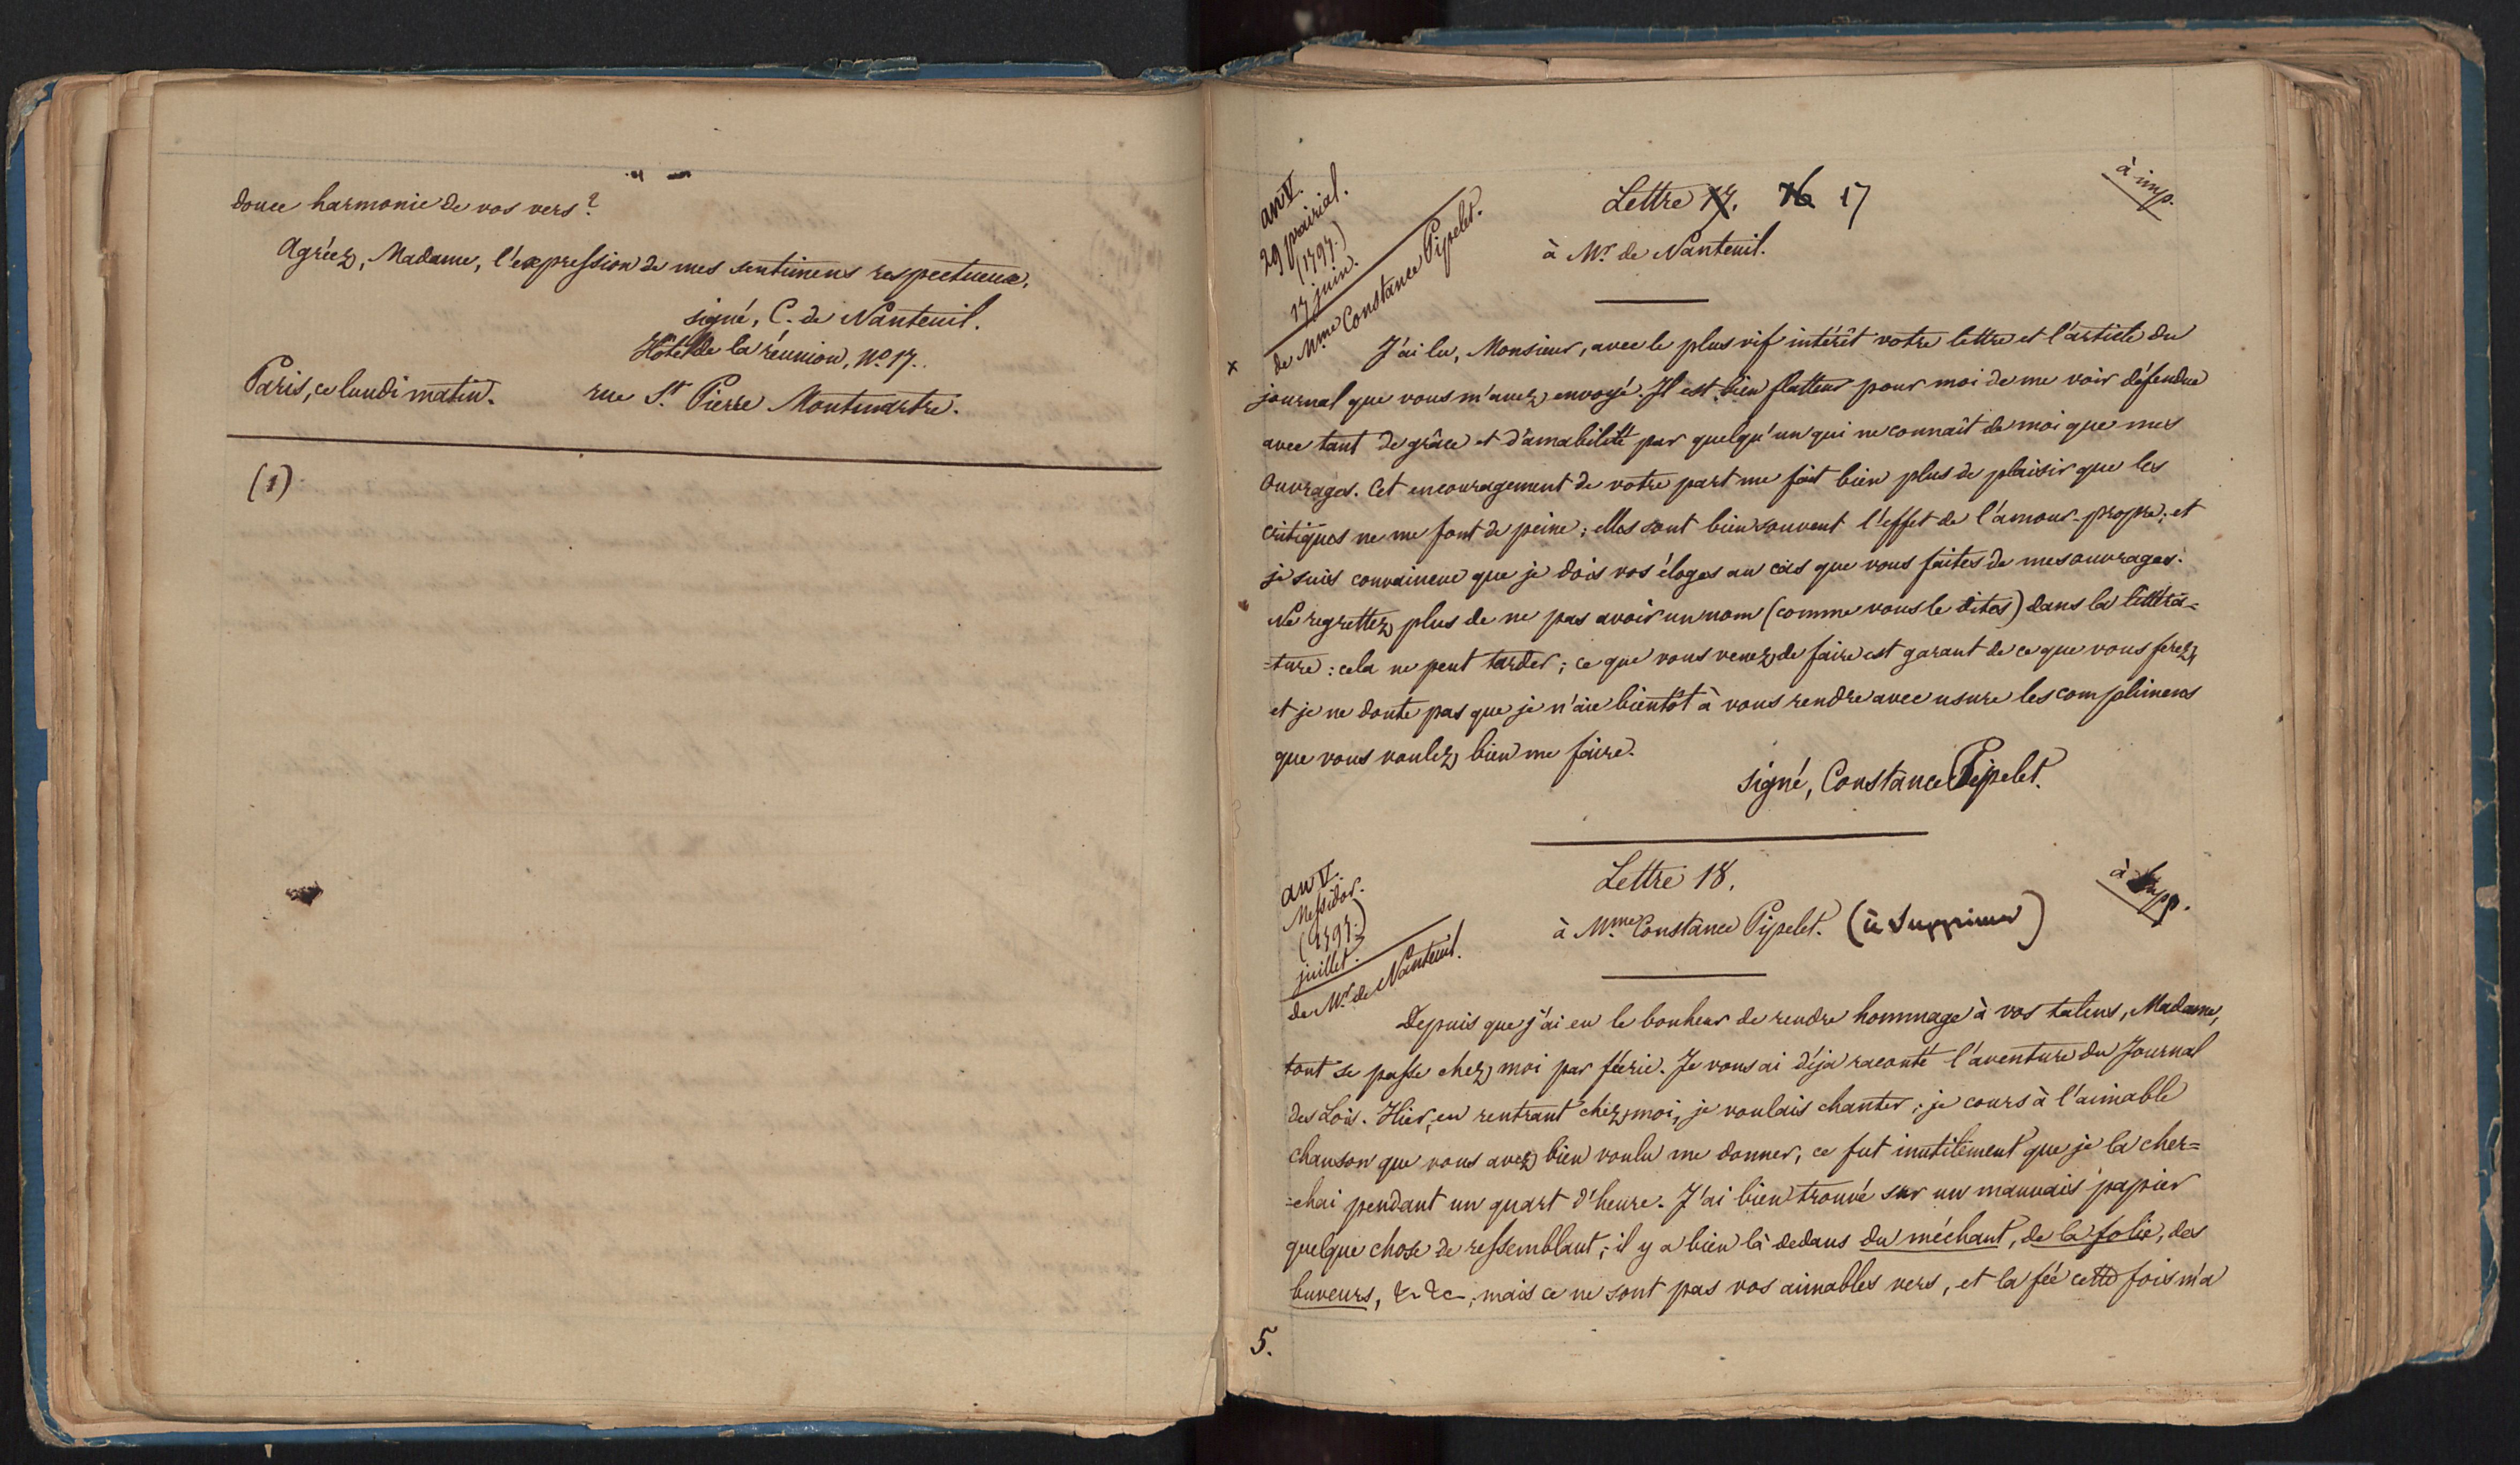 douce harmonie de vos vers?
Agréez, Madame, l'expression de mes sentimens respectueux.
signé, C. de Nanteuil.
Hôtel de la réunion, No. 17.
Paris, ce lundi matin. rue St. Pierre Montmartre.
(1)
an V.
29 prairial.
(1797.)
17 juin.
de Mme Constance Pipelet.
Lettre 17. 16 17
à imp.
à Mr. de Nanteuil.
x
J'ai lu, Monsieur, avec le plus vif intérêt votre lettre et l'article du
journal que vous m'avez envoyé. Il est bien flatteur pour moi de me voir défendue
avec tant de grâce et d'amabilité par quelqu'un qui ne connaît de moi que mes
Ouvrages. Cet encouragement de votre part me fait bien plus de plaisir que les
critiques ne me font de peine; elles sont bien souvent l'effet de l'amour-propre; et
je suis convaincue que je dois vos éloges au cas que vous faites de mes ouvrages.
Ne regrettez plus de ne pas avoir un nom (comme vous le dites) dans la littéra=
=ture: cela ne peut tarder; ce que vous venez de faire est garant de ce que vous ferez,
et je ne doute pas que je n'aie bientôt à vous rendre avec usure les complimens
que vous voulez bien me faire.
signé, Constance Pipelet.
an V.
Messidor.
(1797.)
juillet.
de Mr. de Nanteuil.
Lettre 18.
à supp.
à Mme. Constance Pipelet. (à Supprimer)
Depuis que j'ai eu le bonheur de rendre hommage à vos talens, Madame,
tout se passe chez moi par féerie. Je vous ai déja raconté l'aventure du Journal
des Lois. Hier, en rentrant chez moi, je voulais chanter; je cours à l'aimable
chanson que vous avez bien voulu me donner, ce fut inutilement que je la cher=
=chai pendant un quart d'heure. J'ai bien trouvé sur un mauvais papier
quelque chose de ressemblant; il y a bien là dedans du méchant, de la folie, des
buveurs, &c &c; mais ce ne sont pas vos aimables vers, et la fée cette fois m'a
5.